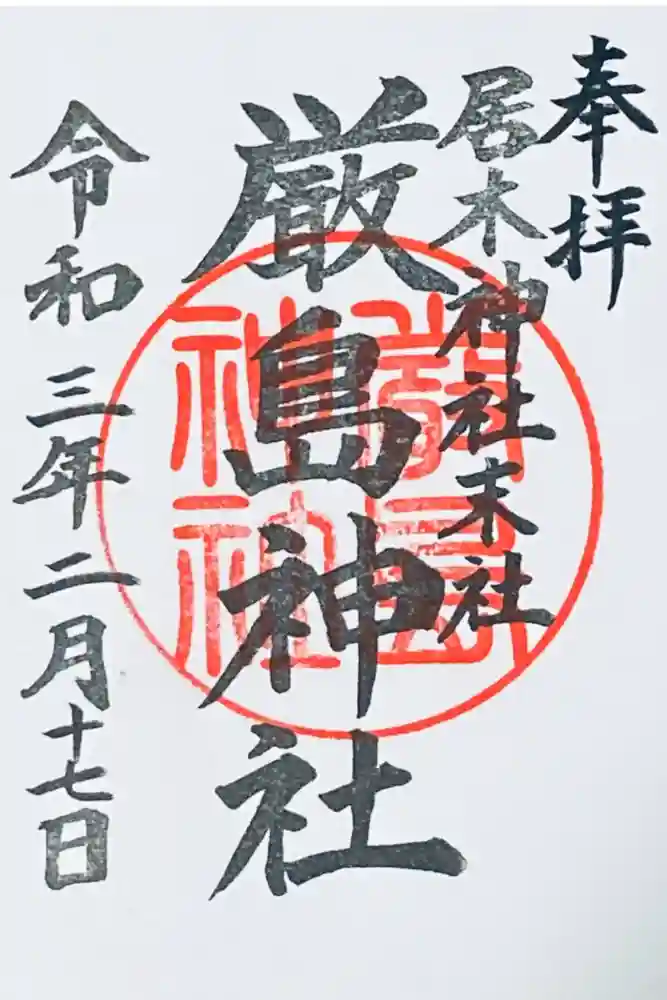 奉拝
居木神社末社
厳島神社
嚴島
神社
令和三年二月十七日